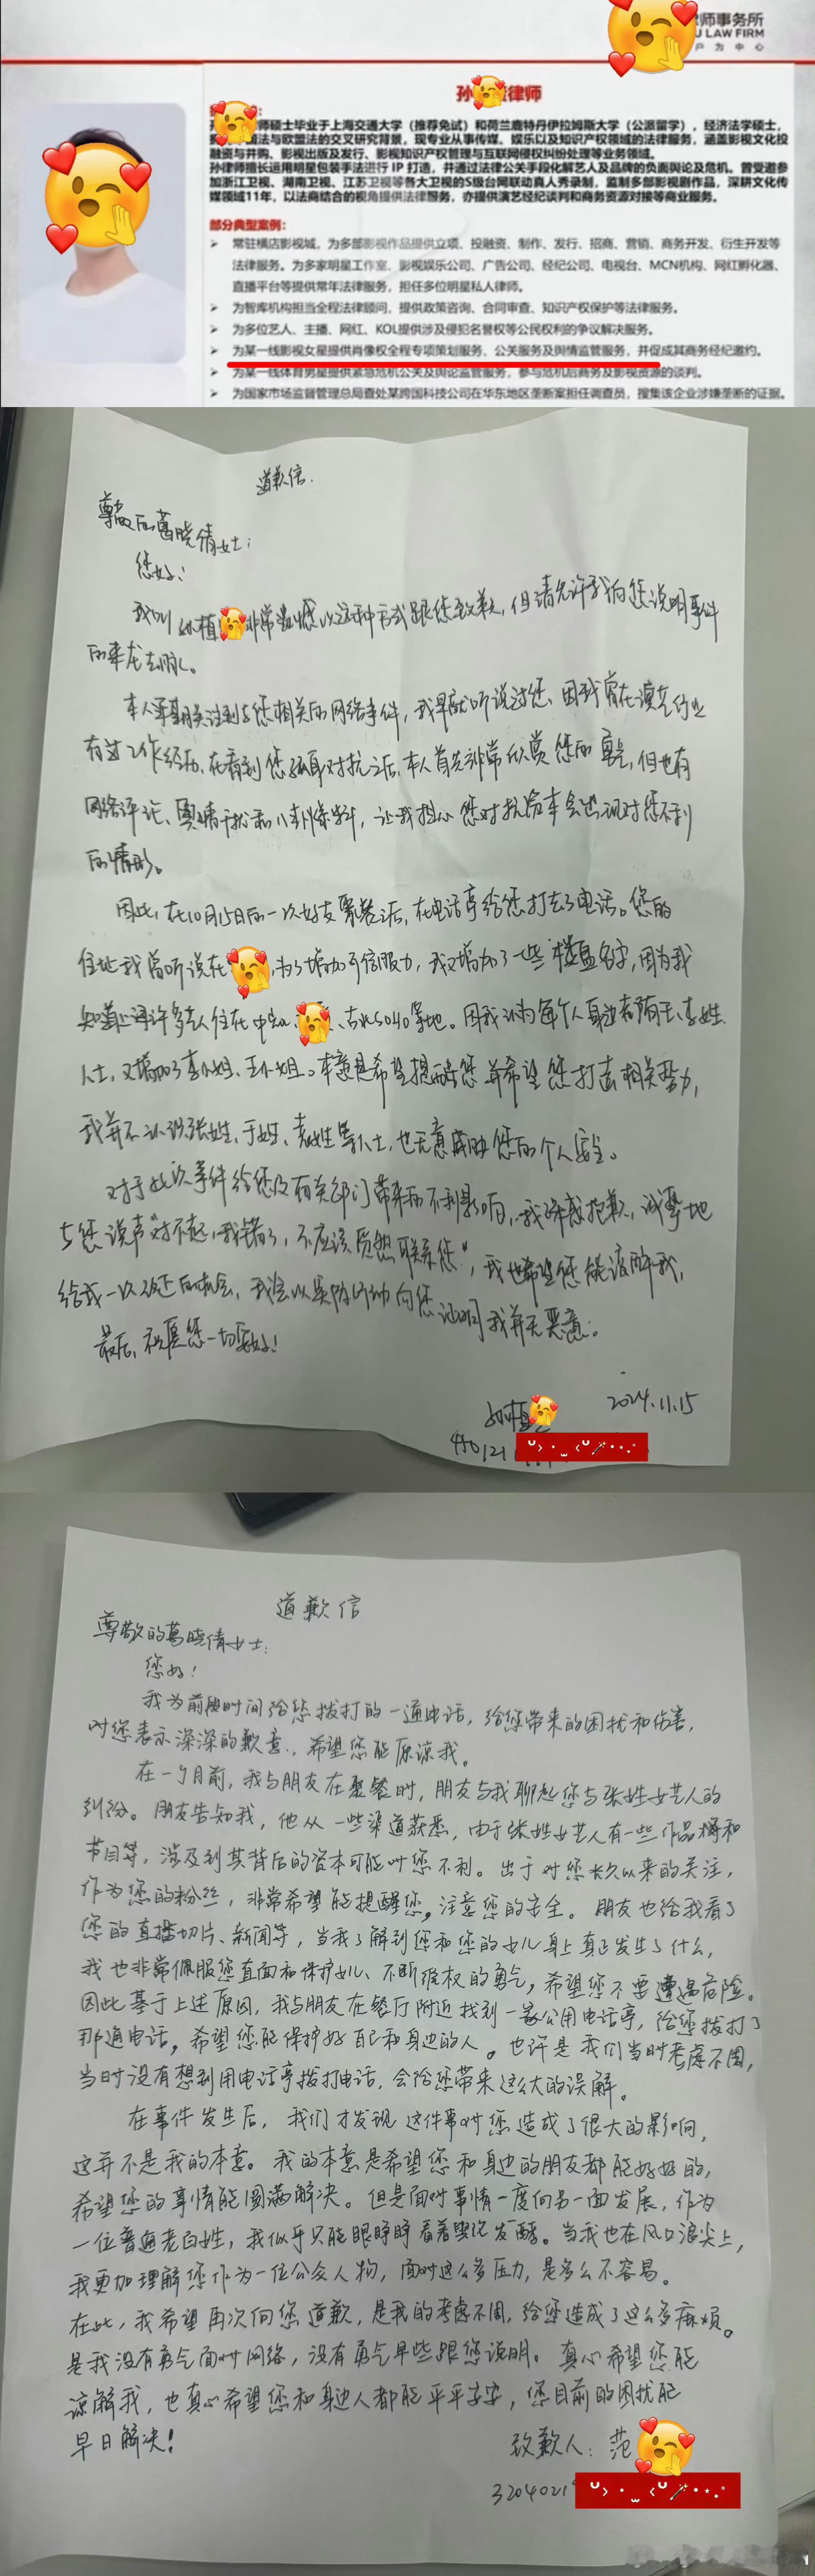 律师事务所
U LAW FIRM
户 为 中 心
孙 律师
师硕士毕业于上海交通大学（推荐免试）和荷兰鹿特丹伊拉姆斯大学（公派留学），经济法学硕士，
法与欧盟法的交叉研究背景，现专业从事传媒、娱乐以及知识产权领域的法律服务，涵盖影视文化投
融资与并购、影视出版及发行、影视知识产权管理与互联网侵权纠纷处理等业务领域。
孙律师擅长运用明星包装手法进行 IP 打造，并通过法律公关手段化解艺人及品牌的负面舆论及危机。曾受邀参
加浙江卫视、湖南卫视、江苏卫视等各大卫视的S级台网联动真人秀录制，监制多部影视剧作品，深耕文化传
媒领域11年，以法商结合的视角提供法律服务，亦提供演艺经纪谈判和商务资源对接等商业服务。
部分典型案例：
➢ 常驻横店影视城，为多部影视作品提供立项、投融资、制作、发行、招商、营销、商务开发、衍生开发等
法律服务。为多家明星工作室、影视娱乐公司、广告公司、经纪公司、电视台、MCN机构、网红孵化器、
直播平台等提供常年法律服务，担任多位明星私人律师。
➢ 为智库机构担当全程法律顾问，提供政策咨询、合同审查、知识产权保护等法律服务。
➢ 为多位艺人、主播、网红、KOL提供涉及侵犯名誉权等公民权利的争议解决服务。
➢ 为某一线影视女星提供肖像权全程专项策划服务、公关服务及舆情监管服务，并促成其商务经纪邀约。
➢ 为某一线体育男星提供紧急危机公关及舆论监管服务，参与危机后商务及影视资源的谈判。
➢ 为国家市场监督管理总局查处某跨国科技公司在华东地区垄断案担任调查员，搜集该企业涉嫌垄断的证据。
道歉信.
尊敬的葛晓倩女士：
您好！
我叫孙植 非常遗憾以这种方式跟您致歉，但请允许我向您说明事件
的来龙去脉。
本人早期关注到与您相关的网络事件，我早就听说过您、因我曾在演艺行业
有过工作经历、在看到您孤身对抗之后，本人首先非常欣赏您的勇气，但也有
网络评论、舆情干扰和八卦爆料，让我担心您对抗资本会出现对您不利
的情形。
因此，在10月15日的一次好友聚餐之后，在电话亭给您打去了电话。您的
住址我曾听说在 ，为了增加可信服力，我又增加了一些楼盘名字，因为我
知道上海许多艺人住在中 、古北SOHO等地。因我认为每个人身边都有王、李姓
人士，又增加了李小姐、王小姐。本意是希望提醒您并希望您打击相关势力，
我并不认识张姓、于姓、袁姓等人士，也无意威胁您的个人安全。
对于此次事件给您及有关部门带来的不利影响，我深感抱歉，诚挚地
与您说声“对不起，我错了，不应该贸然联系您”，我也希望您能谅解我，
给我一次改正的机会，我会以实际行动向您证明我并无恶意。
最后，祝愿您一切安好！
孙植 2024.11.15
道歉信
尊敬的葛晓倩女士：
您好！
我为前段时间给您拨打的一通电话，给您带来的困扰和伤害，
对您表示深深的歉意，希望您能原谅我。
在一个月前，我与朋友在聚餐时，朋友与我聊起您与张姓女艺人的
纠纷。朋友告知我，他从一些渠道获悉，由于张姓女艺人有一些作品播和
节目等，涉及到其背后的资本可能对您不利。出于对您长久以来的关注，
作为您的粉丝，非常希望能提醒您，注意您的安全。朋友也给我看了
您的直播切片、新闻等，当我了解到您和您的女儿身上真正发生了什么，
我也非常佩服您直面和保护女儿、不断维权的勇气，希望您不要遭遇危险。
因此基于上述原因，我与朋友在餐厅附近找到一家公用电话亭，给您拨打了
那通电话，希望您能保护好自己和身边的人。也许是我们当时考虑不周，
当时没有想到用电话亭拨打电话，会给您带来这么大的误解。
在事件发生后，我们才发现这件事对您造成了很大的影响，
这并不是我的本意。我的本意是希望您和身边的朋友都能好好的，
希望您的事情能圆满解决。但是面对事情一度向另一面发展，作为
一位普通老百姓，我似乎只能眼睁睁看着舆论发酵。当我也在风口浪尖上，
我更加理解您作为一位公众人物，面对这么多压力，是多么不容易。
在此，我希望再次向您道歉，是我的考虑不周，给您造成了这么多麻烦。
是我没有勇气面对网络，没有勇气早些跟您说明。真心希望您能
谅解我，也真心希望您和身边人都能平平安安，您目前的困扰能
早日解决！
致歉人：范
3204021